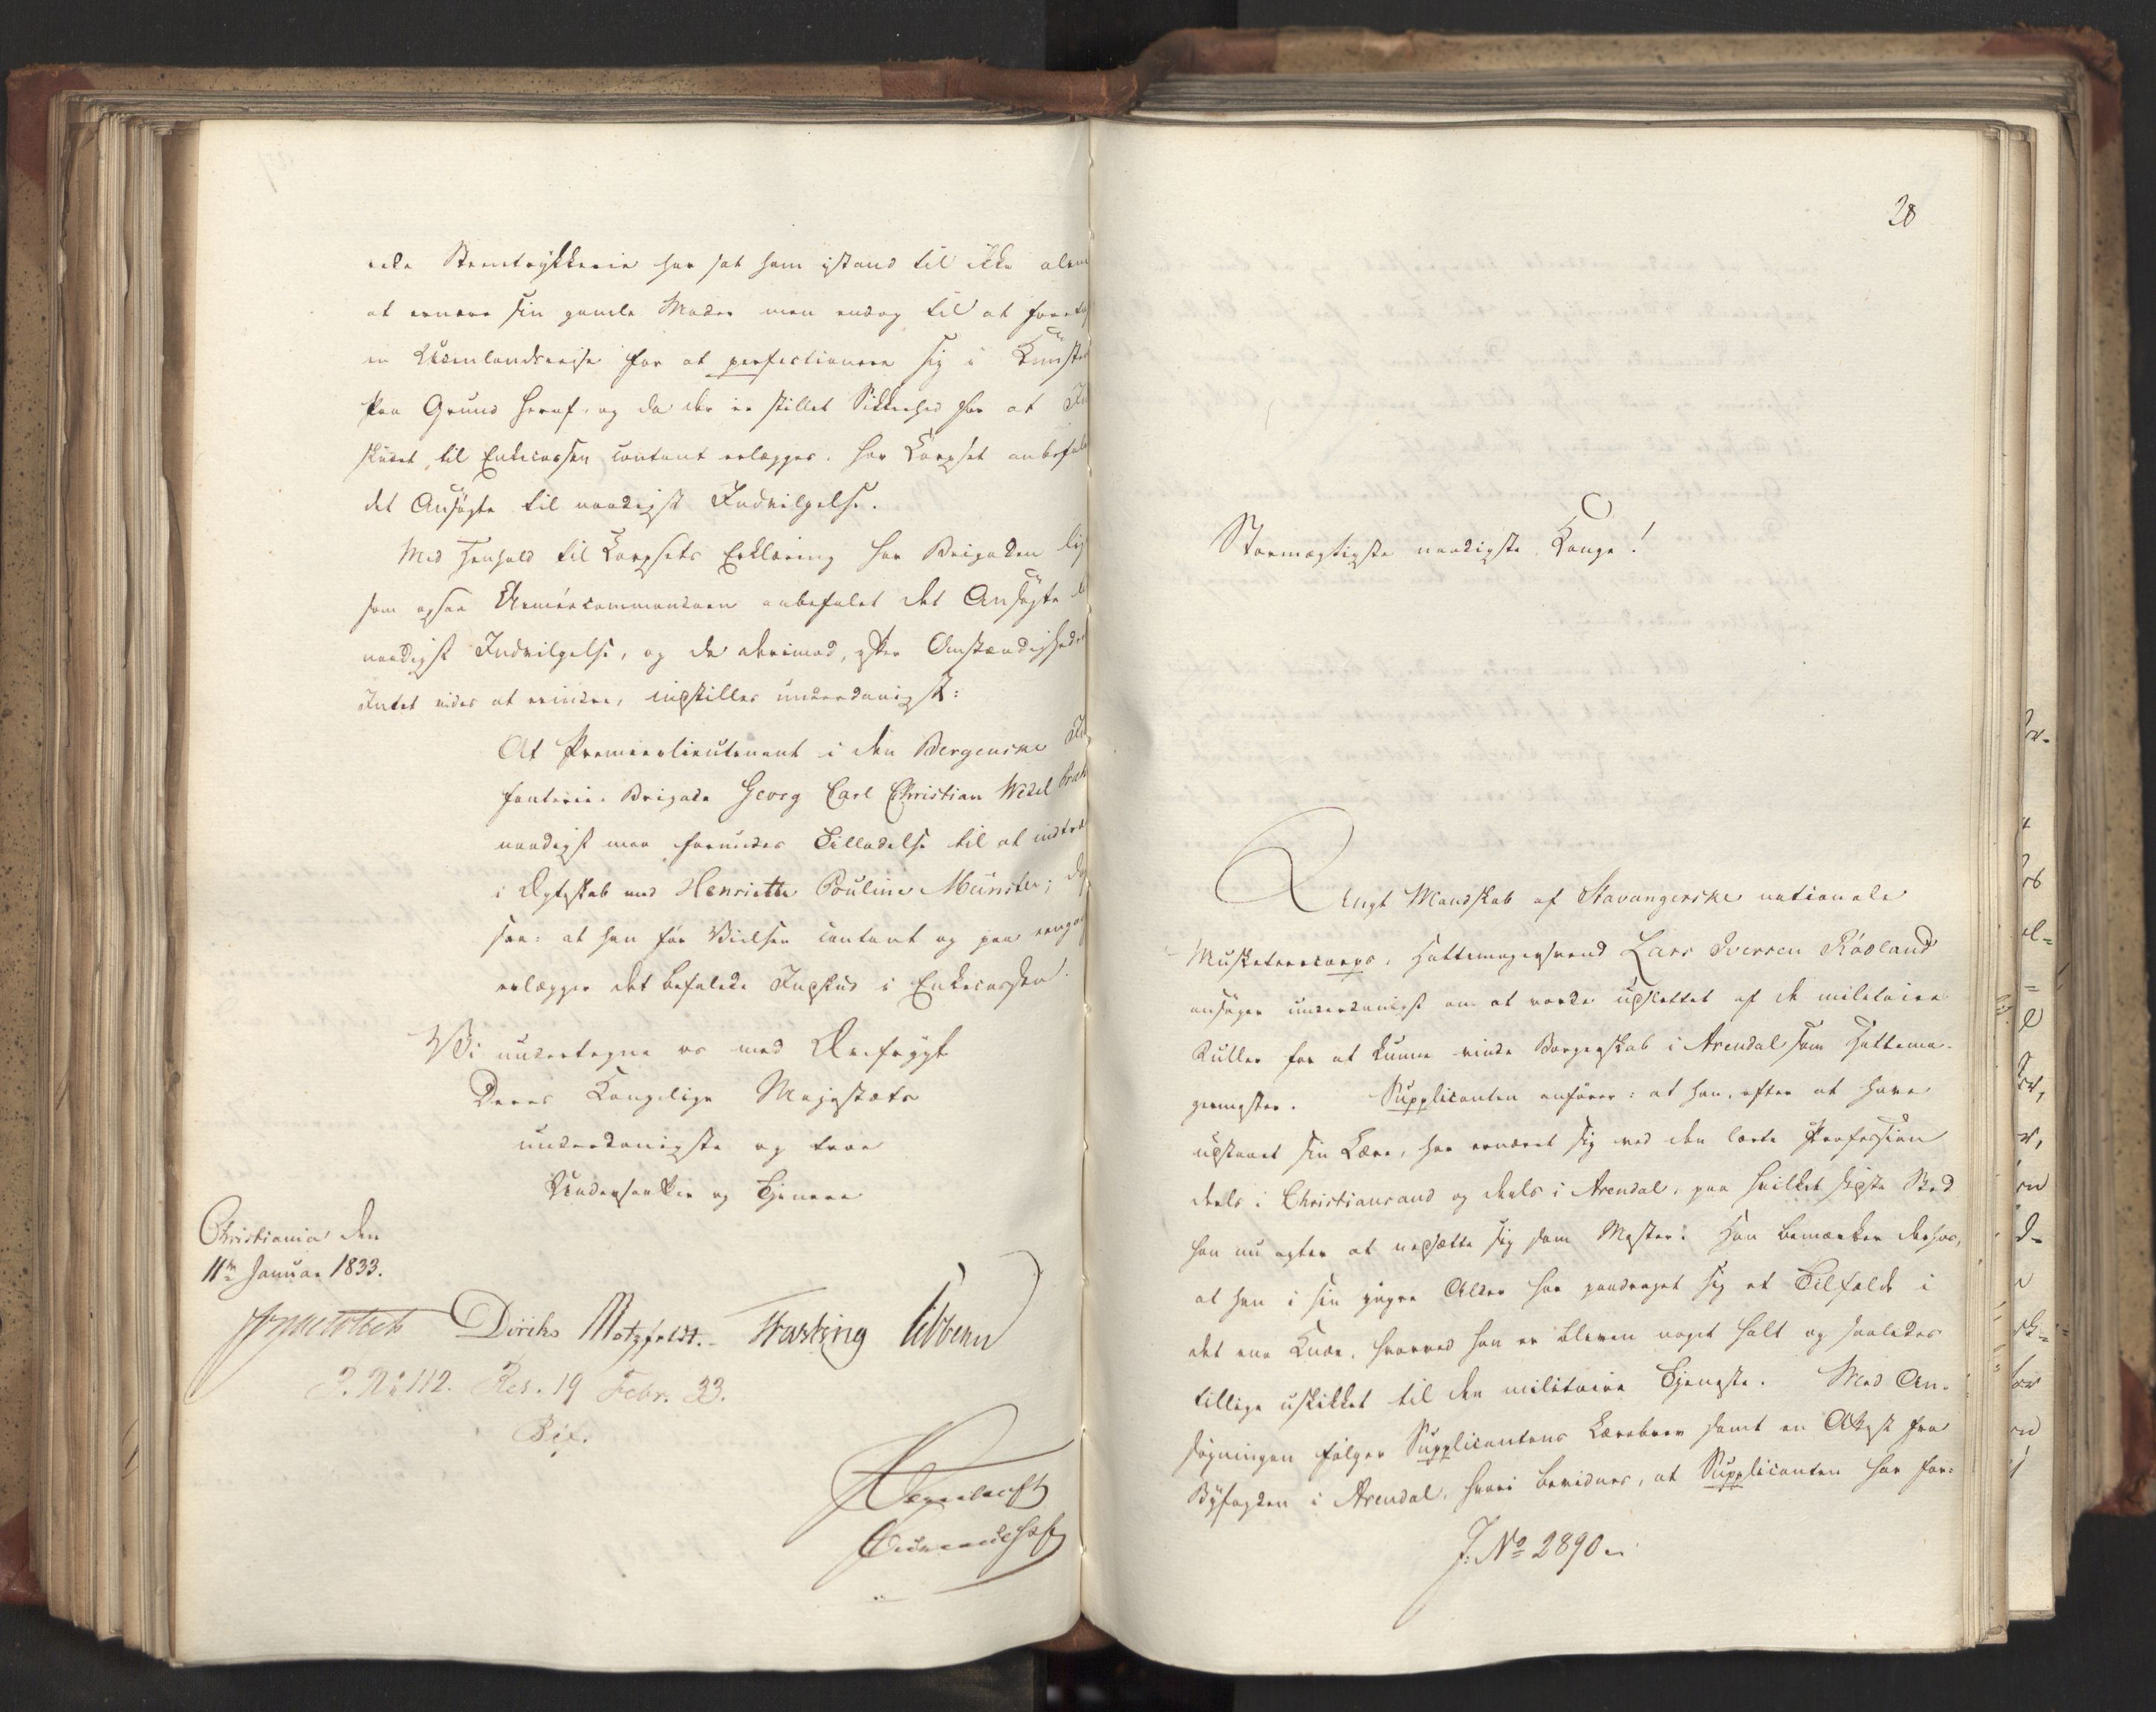 rede Steentrykkerie har sat ham istand til ikke alene
at ernære sin gamle Moder men endog til at foretag
en Udenlandsreise for at perfectionere sig i Kunsten
Paa Grund heraf, og da der er stillet Sikkerhed for at In
skudet til Enkecassen contant erlægges, har Korpset anbefal
det Ansøgte til naadigst Indvilgelse.
Med Henhold til Korpsets Erklæring har Brigaden lig
som ogsaa Armeecommandoen anbefalet det Ansøgte
naadigst Indvilgelse, og da derimod, efter Omstændighede
Intet vides at erindre, indstilles underdanigst:
At Premierlieutenant i den Bergenske In
fanterie-Brigade Georg Carl Christian Wedel
naadigst maa forundes Tilladelse til at indtræ
i Ægteskab med Henriette Pouline Münster; dog
saa: at han før Vielsen contant og paa eengan
erlægger det befalede Indskud i Enkecassen.
Vi undertegne os med Ærefrygt
Deres Kongelige Majestæts
underdanigste og troe
Undersaatter og Tjenere
Christiania den
11te Januar 1833.
Diriks Motzfeldt. Fasting Vibe
J. No 112. Res. 19 Febr. 33.
Bif.
28
Stormægtigste naadigste Konge!
Ungt Mandskab af Stavangerske nationale
Musketeercorps, Hattemagersvend Lars Iversen Rødland
ansøger underdanigst om at vorde udslettet af de militaire
Ruller for at kunne vinde Borgerskab i Arendal som Hattema-
germester. Supplicanten anfører: at han, efter at have
udstaaet sin Lære, har ernæret sig ved den lærte Profession
deels i Christiansand og deels i Arendal, paa hvilket sidste Sted
han nu agter at nedsætte sig som Mester. Han bemærker derhos,
at han i sin yngre Alder har paadraget sig et Tilfælde i
det ene Knæ, hvorved han er bleven noget halt og saaledes
tillige uskikket til den militaire Tjeneste. Med An-
søgningen følger Supplicantens Lærebrev samt en Attest fra
Byfogden i Arendal, hvori bevidnes, at Supplicanten har for-
J: No 2890